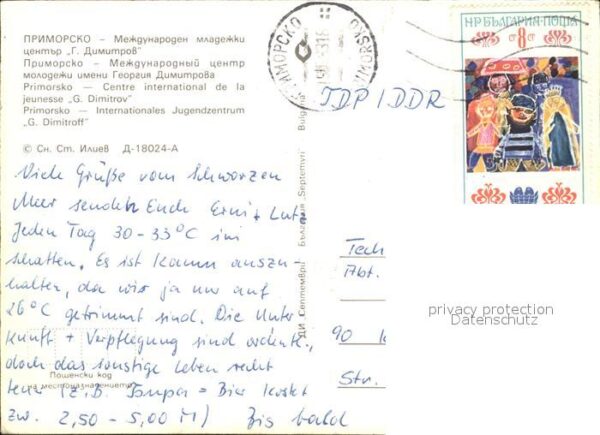 ПРИМОРСКО – Международен младежки
център „Г. Димитров"
Приморско – Международный центр
молодежи имени Георгия Димитрова
Primorsko – Centre international de la
jeunesse „G. Dimitrov"
Primorsko – Internationales Jugendzentrum
„G. Dimitroff"
© Сн. Ст. Илиев Д-18024-А
Viele Grüße vom Schwarzen
Meer senden Euch Erni + Lutz
Jeden Tag 30 - 33°C im
Schatten. Es ist kaum auszu-
halten, da wir ja nur auf
26°C getrimmt sind. Die Unter-
kunft + Verpflegung sind ordentl.,
doch das sonstige Leben recht
teuer (z.B. Бира = Bier kostet
zw. 2,50 - 5,00 M) Bis bald
Пощенски код
на местоназначението
ДИ „Септември" България Septemvri Bulgaria
ПРИМОРСКО
PRIMORSKO
НР БЪЛГАРИЯ·ПОЩА
СТ 8 СТ
DDR
Tech
Abt.
90 K
Str.
privacy protection
Datenschutz